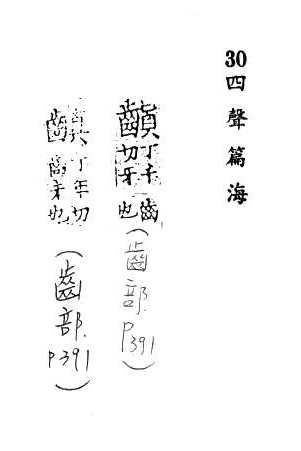 30四聲篇海
齻丁千切牙也
(齒部.P391)
丁年切齒牙也
(齒部.P391)